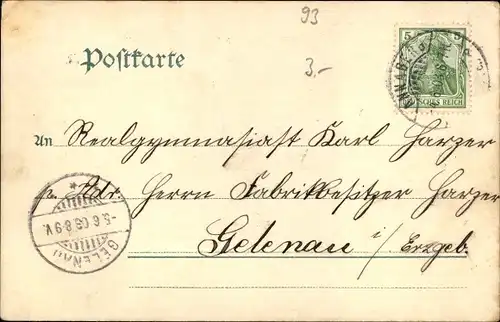 93
Postkarte
3.-
5 5
DEUTSCHES REICH
An Realgymnasiast Karl Harzer
Adr. Herrn Fabrikbesitzer Harzer
Gelenau i/Erzgeb.
*
-5.6.03.8-9V.
GELENAU